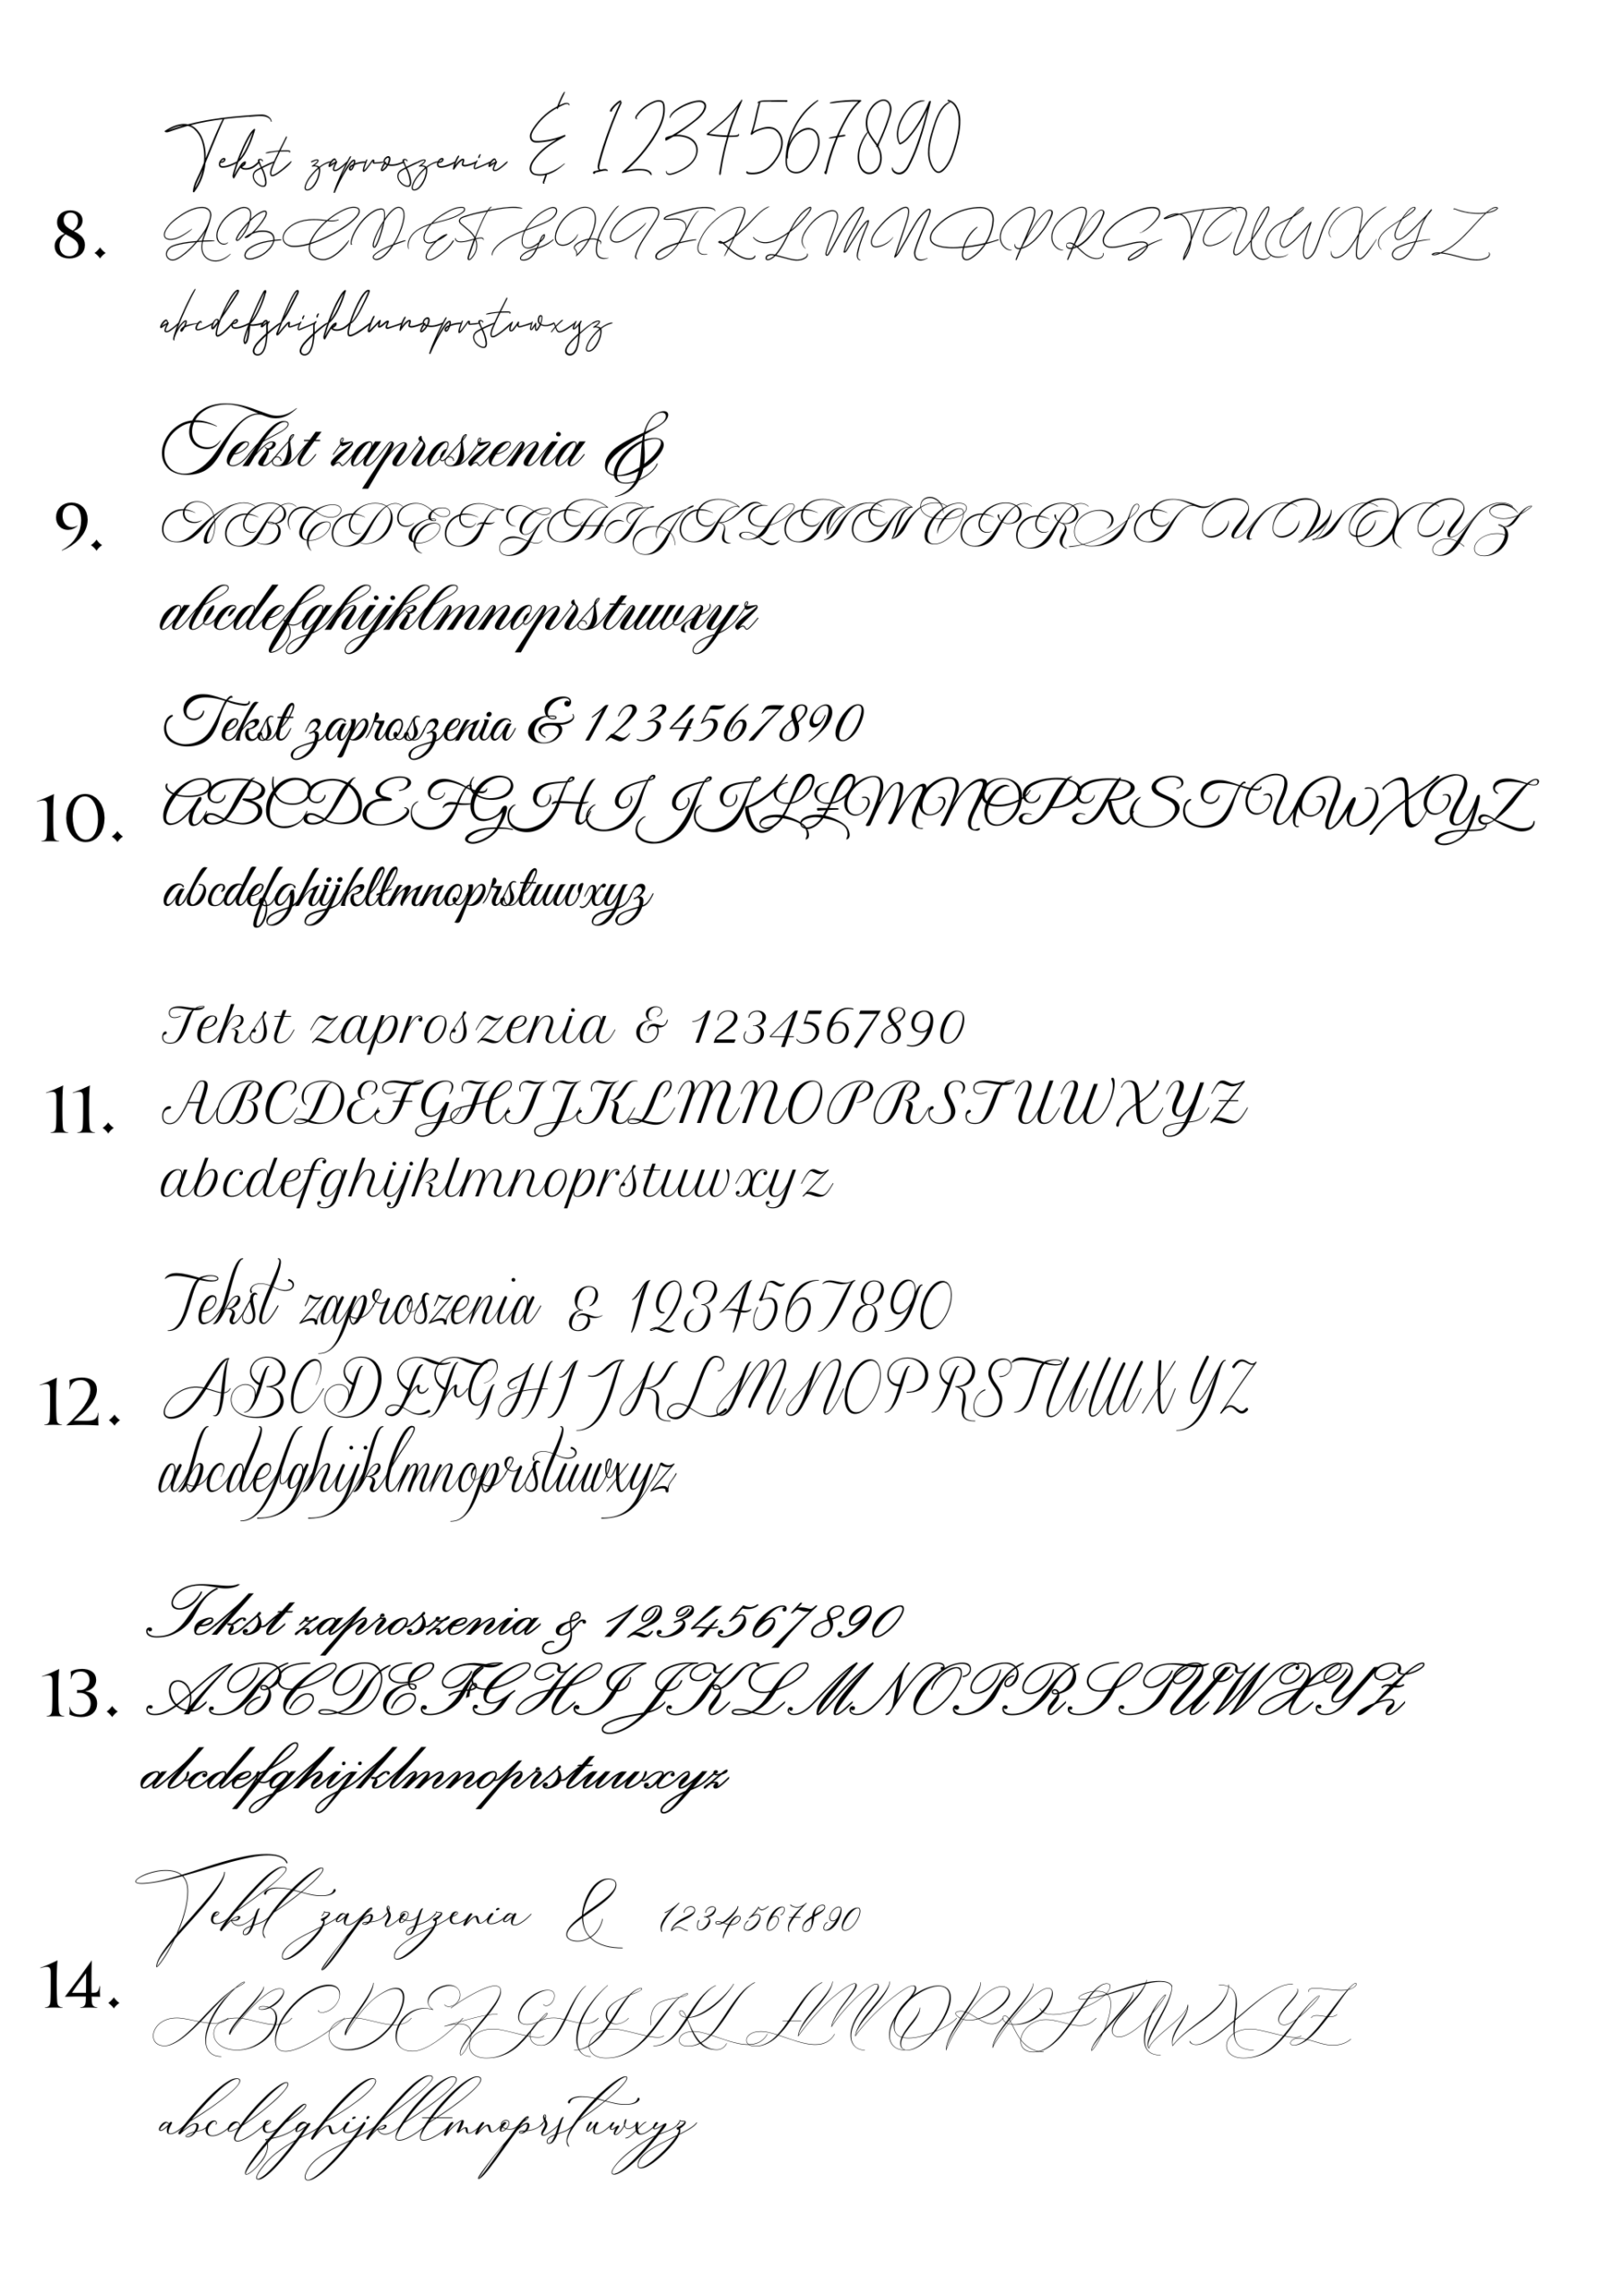 Tekst zaproszenia & 1234567890
8. ABCDEFGHIJKLMNOPRSTUWXYZ
abcdefghijklmnoprstuwxyz
Tekst zaproszenia &
9. ABCDEFGHIJKLMNOPRSTUWXYZ
abcdefghijklmnoprstuwxyz
Tekst zaproszenia & 1234567890
10. ABCDEFGHIJKLŁMNOPRSTUWXYZ
abcdefghijklłmnoprstuwxyz
Tekst zaproszenia & 1234567890
11. ABCDEFGHIJKLMNOPRSTUWXYZ
abcdefghijklmnoprstuwxyz
Tekst zaproszenia & 1234567890
12. ABCDEFGHIJKLMNOPRSTUWXYZ
abcdefghijklmnoprstuwxyz
Tekst zaproszenia & 1234567890
13. ABCDEFGHIJKLMNOPRSTUWXYZ
abcdefghijklmnoprstuwxyz
Tekst zaproszenia & 1234567890
14. ABCDEFGHIJKLŁMNOPRSTUWXYZ
abcdefghijklłmnoprstuwxyz